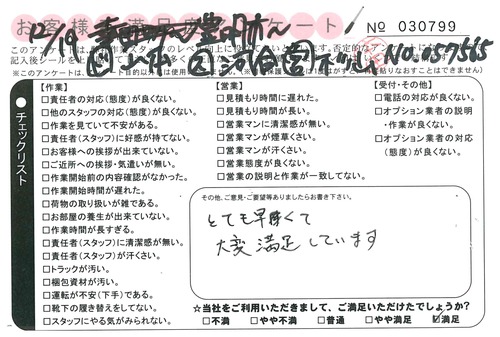 お客様満足度アンケート
No 030799
12/19
No.057565
【作業】
□責任者の対応(態度)が良くない。
□他のスタッフの対応(態度)が良くない。
□作業を見ていて不安がある。
□責任者(スタッフ)に好感が持てない。
□お客様への挨拶が出来ていない。
□ご近所への挨拶・気遣いが無い。
□作業開始前の内容確認がなかった。
□作業開始時間が遅れた。
□荷物の取り扱いが雑である。
□お部屋の養生が出来ていない。
□作業時間が長すぎる。
□責任者(スタッフ)に清潔感が無い。
□責任者(スタッフ)が汗くさい。
□トラックが汚い。
□梱包資材が汚い。
□運転が不安(下手)である。
□靴下の履き替えをしてない。
□スタッフにやる気がみられない。
チェックリスト
【営業】
□見積もり時間に遅れた。
□見積もり時間が長い。
□営業マンに清潔感が無い。
□営業マンが煙草くさい。
□営業マンが汗くさい。
□営業態度が良くない。
□営業の説明と作業が一致してない。
【受付・その他】
□電話の対応が良くない。
□オプション業者の説明
・作業が良くない。
□オプション業者の対応
(態度)が良くない。
その他、ご意見・ご要望等ありましたらお書き下さい。
とても早くて
大変満足しています
☆当社をご利用いただきまして、ご満足いただけたでしょうか?
□不満 □やや不満 □普通 □やや満足 ☑満足